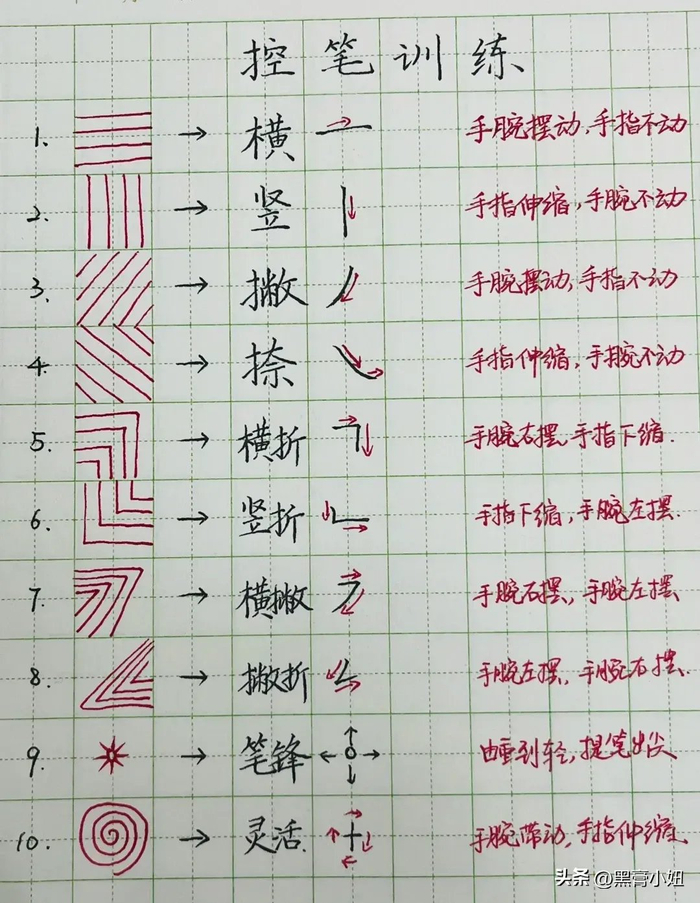 控笔训练
1. → 横 手腕摆动,手指不动
2. → 竖 手指伸缩,手腕不动
3. → 撇 手腕摆动,手指不动
4. → 捺 手指伸缩,手腕不动
5. → 横折 手腕右摆,手指下缩.
6. → 竖折 手指下缩,手腕左摆.
7. → 横撇 手腕右摆,手腕左摆.
8. → 撇折 手腕左摆,手腕右摆.
9. → 笔锋 由重到轻,提笔出尖
10. → 灵活. 手腕带动,手指伸缩.
头条 @黑膏小妞